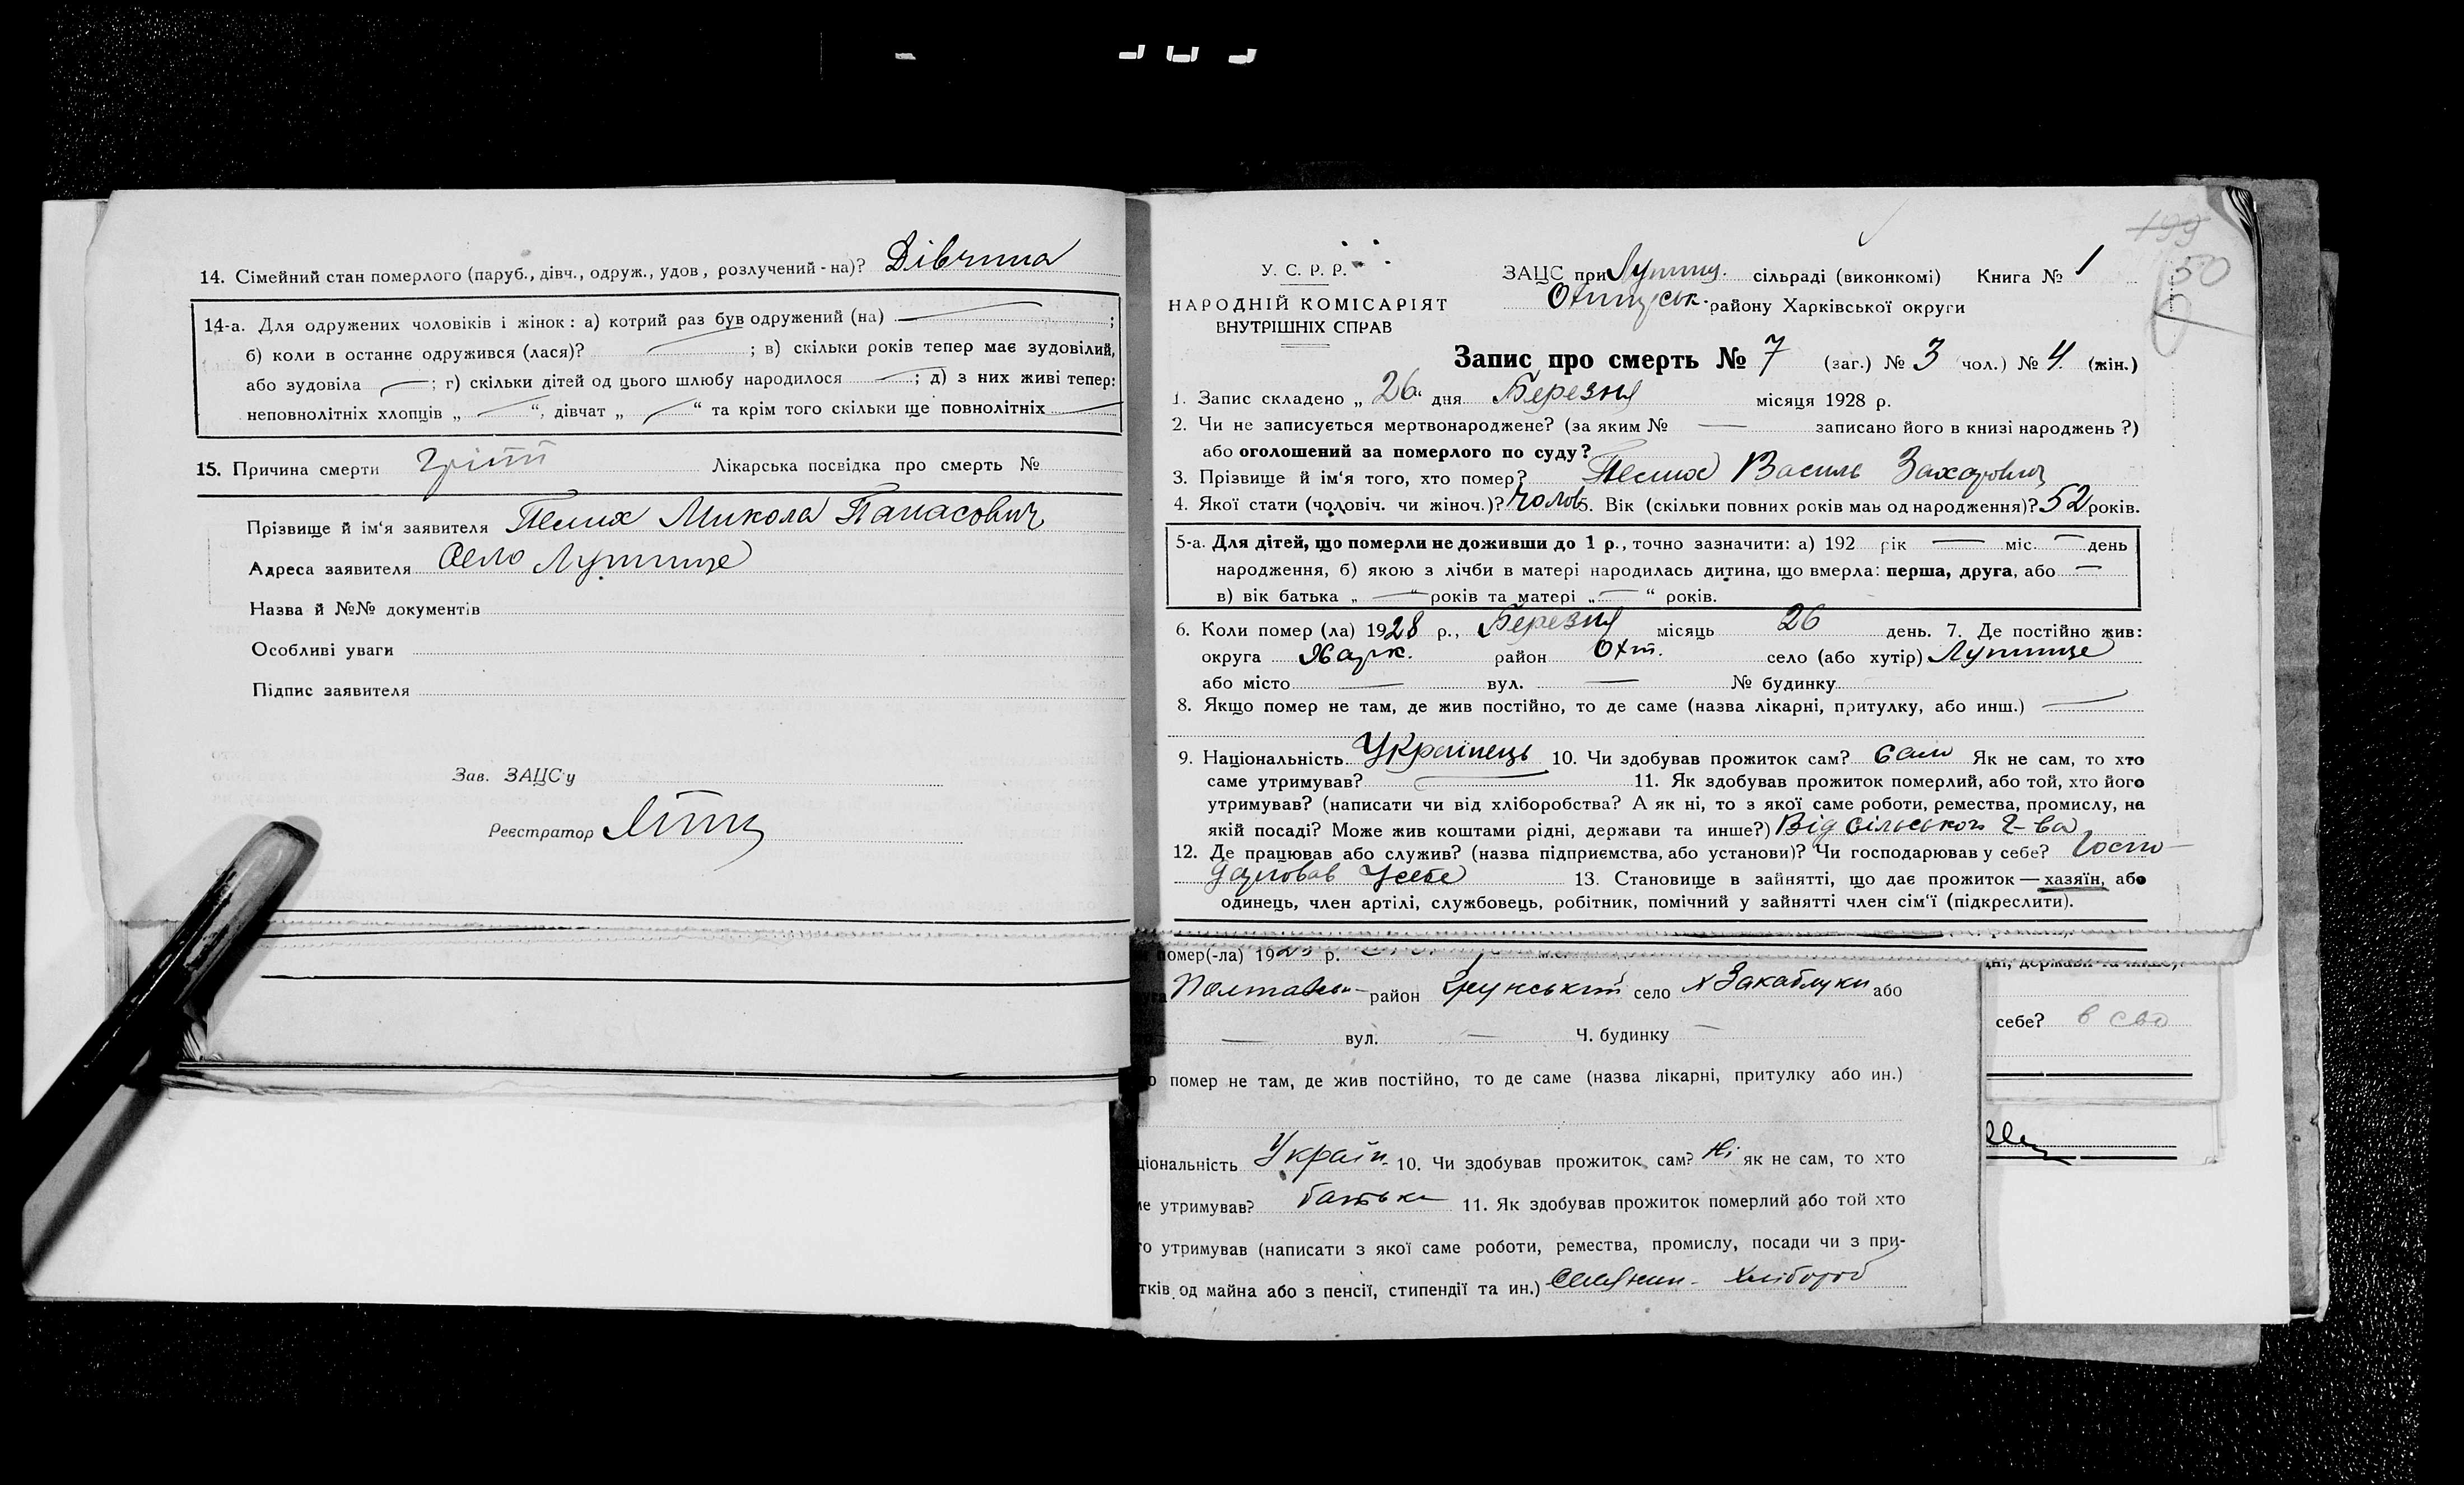 14. Сімейний стан померлого (паруб., дівч., одруж., удов, розлучений - на)? Дівчина
14-а. Для одружених чоловіків і жінок: а) котрий раз був одружений (на) — ;
б) коли в останнє одружився (лася)? — ; в) скільки років тепер має зудовілий,
або зудовіла — ; г) скільки дітей од цього шлюбу народилося — ; д) з них живі тепер:
неповнолітніх хлопців „ — “, дівчат „ — “ та крім того скільки ще повнолітніх —
15. Причина смерти Гріпп Лікарська посвідка про смерть №
Прізвище й ім‘я заявителя Пелих Микола Панасович
Адреса заявителя Село Лутище
Назва й №№ документів
Особливі уваги
Підпис заявителя
Зав. ЗАЦС‘у
Реєстратор
199
50
У. С. Р. Р.
НАРОДНІЙ КОМІСАРІЯТ
ВНУТРІШНІХ СПРАВ
ЗАЦС при Лутищ. сільраді (виконкомі) Книга № 1
Охтирськ. району Харківської округи
Запис про смерть № 7 (заг.) № 3 (чол.) № 4 (жін.)
1. Запис складено „ 26 “ дня Березня місяця 1928 р.
2. Чи не записується мертвонароджене? (за яким № — записано його в книзі народжень ?)
або оголошений за померлого по суду?
3. Прізвище й ім‘я того, хто помер? Пелих Василь Захарович
4. Якої стати (чоловіч. чи жіноч.)? Чолов 5. Вік (скільки повних років мав од народження)? 52 років.
5-а. Для дітей, що померли не доживши до 1 р., точно зазначити: а) 192 рік — міс. — день
народження, б) якою з лічби в матері народилась дитина, що вмерла: перша, друга, або —
в) вік батька „ — “ років та матері „ — “ років.
6. Коли помер (ла) 1928 р., Березня місяць 26 день. 7. Де постійно жив:
округа Харк. район Охт. село (або хутір) Лутище
або місто — вул. — № будинку
8. Якщо помер не там, де жив постійно, то де саме (назва лікарні, притулку, або инш.) —
9. Національність Українець 10. Чи здобував прожиток сам? Сам Як не сам, то хто
саме утримував? — 11. Як здобував прожиток померлий, або той, хто його
утримував? (написати чи від хліборобства? А як ні, то з якої саме роботи, ремества, промислу, на
якій посаді? Може жив коштами рідні, держави та инше?) Від сільського г-ва
12. Де працював або служив? (назва підприємства, або установи)? Чи господарював у себе? Госпо-
дарював у себе 13. Становище в зайнятті, що дає прожиток — хазяїн, або
одинець, член артілі, службовець, робітник, помічний у зайнятті член сім‘ї (підкреслити).
помер(-ла) 19 р.
район Грунський село х Закаблуки або
— вул. — Ч. будинку —
помер не там, де жив постійно, то де саме (назва лікарні, притулку або ин.)
ціональність Україн. 10. Чи здобував прожиток сам? Ні як не сам, то хто
ме утримував? батько 11. Як здобував прожиток померлий або той хто
го утримував (написати з якої саме роботи, ремества, промислу, посади чи з при-
тків од майна або з пенсії, стипендії та ин.) Селянин - Хлібороб
себе? в сво